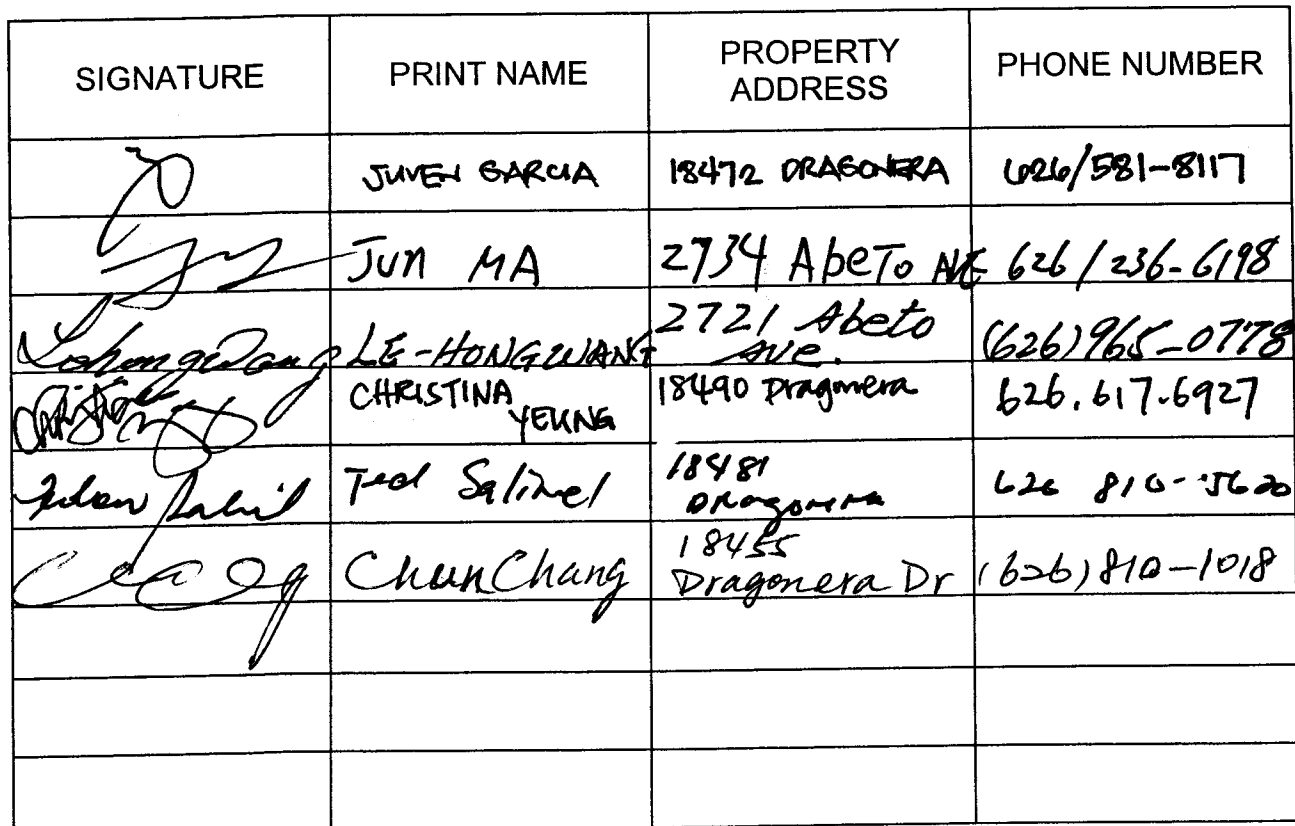 SIGNATURE PRINT NAME PROPERTY ADDRESS PHONE NUMBER
JUVEN GARCIA 18472 DRAGONERA 626/581-8117
JUN MA 2734 Abeto AVE 626/236-6198
Lehong Wang LE-HONG WANG 2721 Abeto Ave. (626) 965-0778
CHRISTINA YEUNG 18490 Dragonera 626.617.6927
Ted 18481 Dragonera 626 810-5620
Chun Chang 18455 Dragonera Dr (626) 810-1018